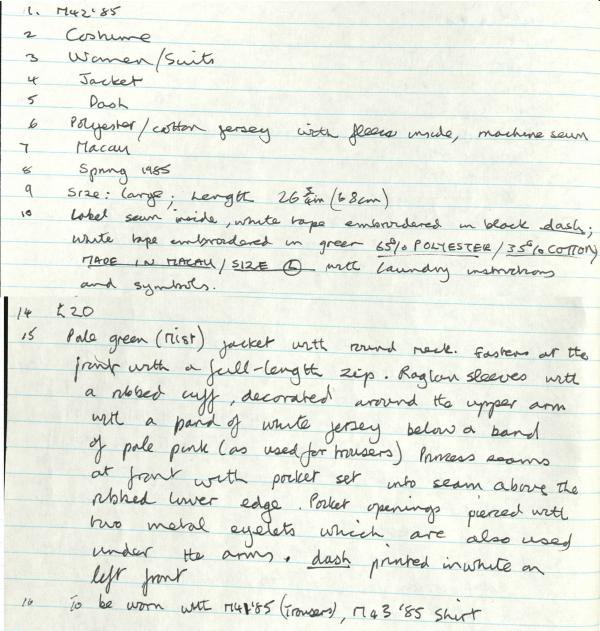 1. M42'85
2 Costume
3 Women/Suits
4 Jacket
5 Dash
6 Polyester/cotton jersey with fleece inside, machine sewn
7 Macau
8 Spring 1985
9 Size: large; Length 26 3/4in (68cm)
10 Label sewn inside, white tape embroidered in black dash;
white tape embroidered in green 65% POLYESTER/35% COTTON
MADE IN MACAU/SIZE L with laundry instructions
and symbols.
14 £20
15 Pale green (Mist) jacket with round neck. Fastens at the
front with a full-length zip. Raglan sleeves with
a ribbed cuff, decorated around the upper arm
with a band of white jersey below a band
of pale pink (as used for trousers) Princess seams
at front with pocket set into seam above the
ribbed lower edge. Pocket openings pierced with
two metal eyelets which are also used
under the arms. dash printed in white on
left front
16 To be worn with M41'85 (Trousers), M43'85 Shirt